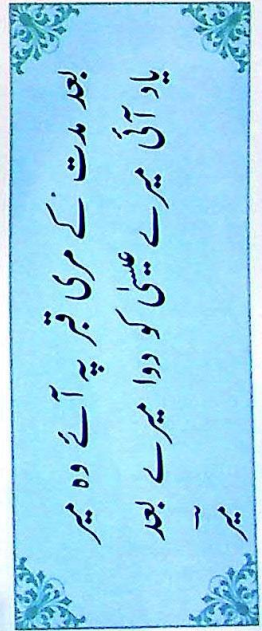 بعد مدت کے مری قبر پہ آئے وہ میر
یاد آئی میرے عیسیٰ کو دوا میرے بعد
میر